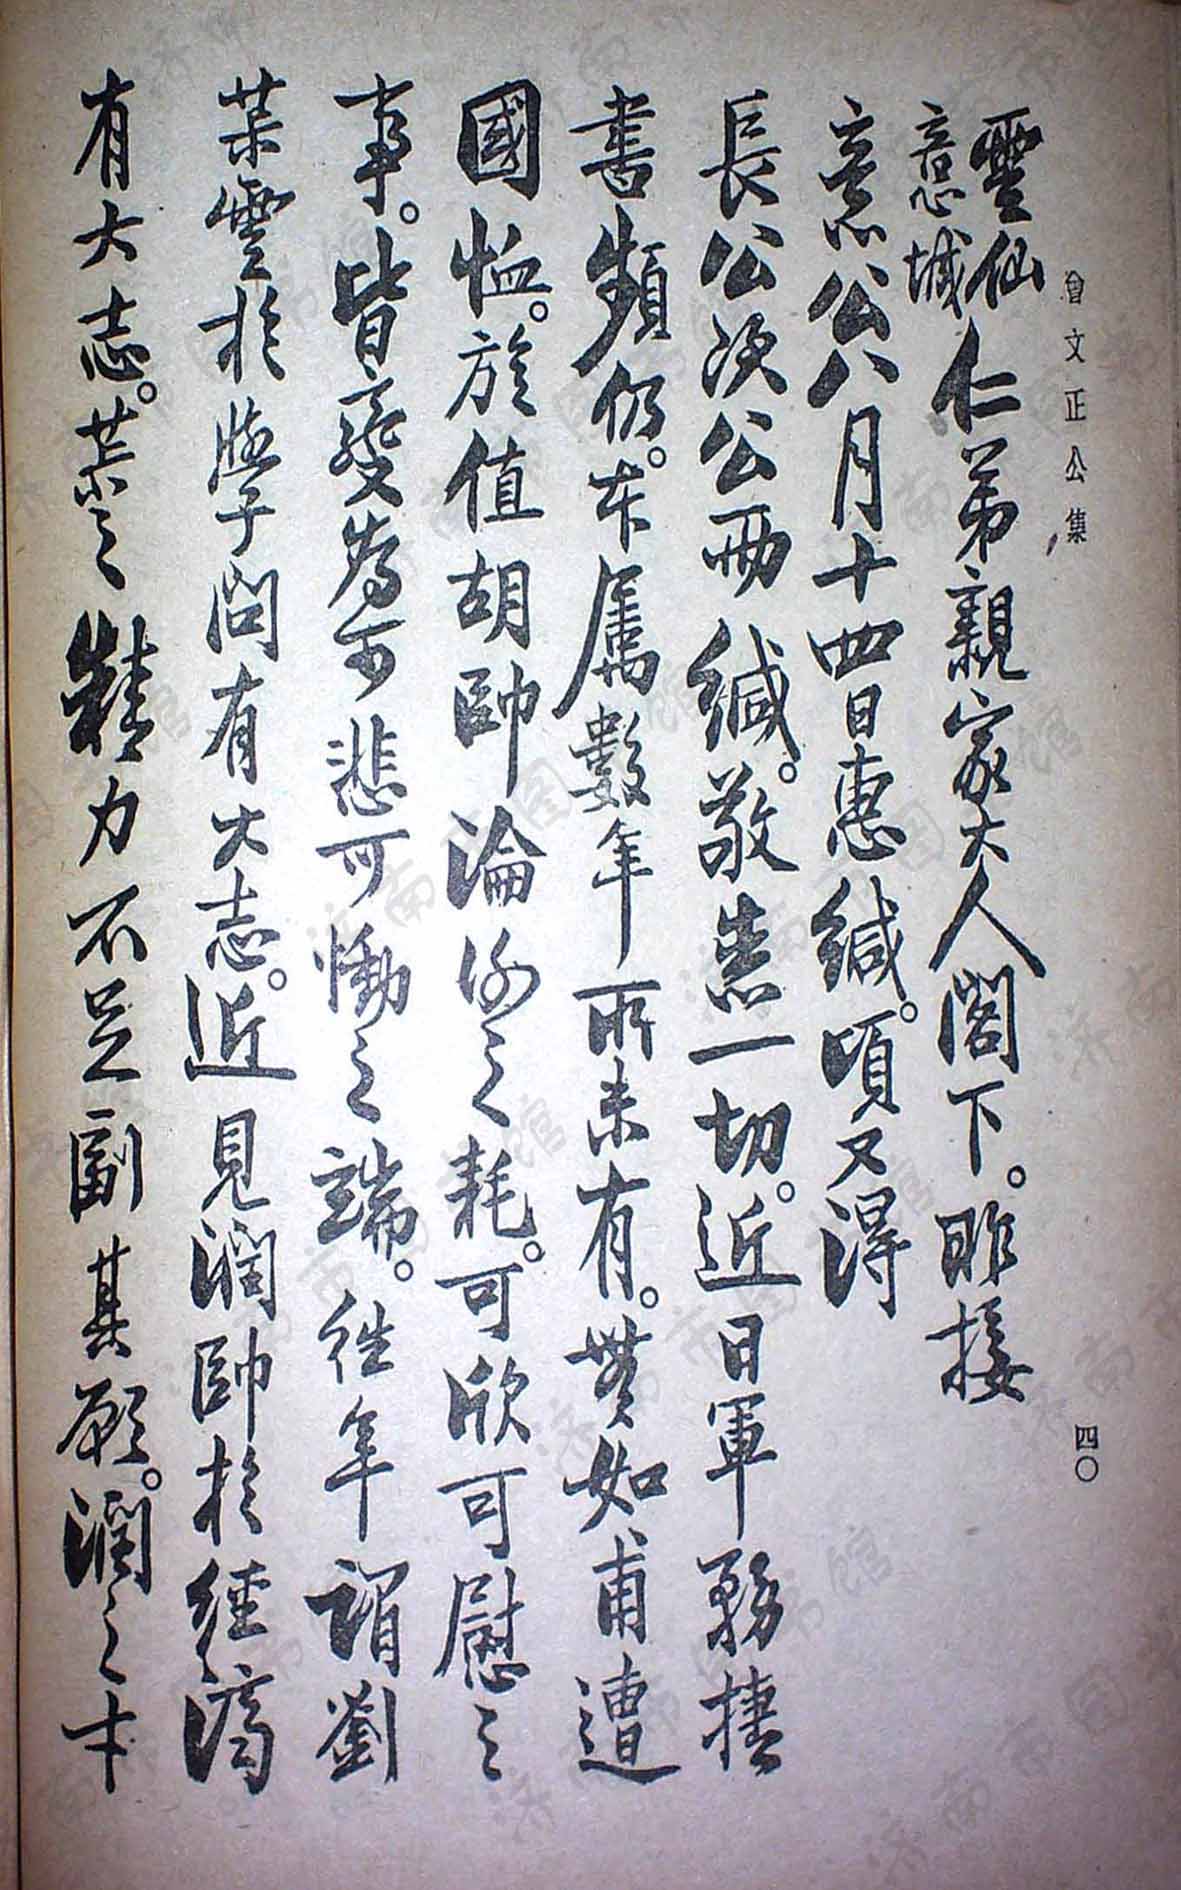 曾文正公集
四〇
雲仙
意城
仁弟親家大人閣下。昨接
意公八月十四日惠緘。頃又得
長公次公兩緘。敬悉一切。近日軍務捷
書頻仍。本屬數年所未有。無如甫遭
國恤。旋值胡帥淪徂之耗。可欣可慰之
事。皆變為可悲可慟之端。往年謂劉
菉雲於學問有大志。近見潤帥於經濟
有大志。菉之精力不足副其願。潤之才